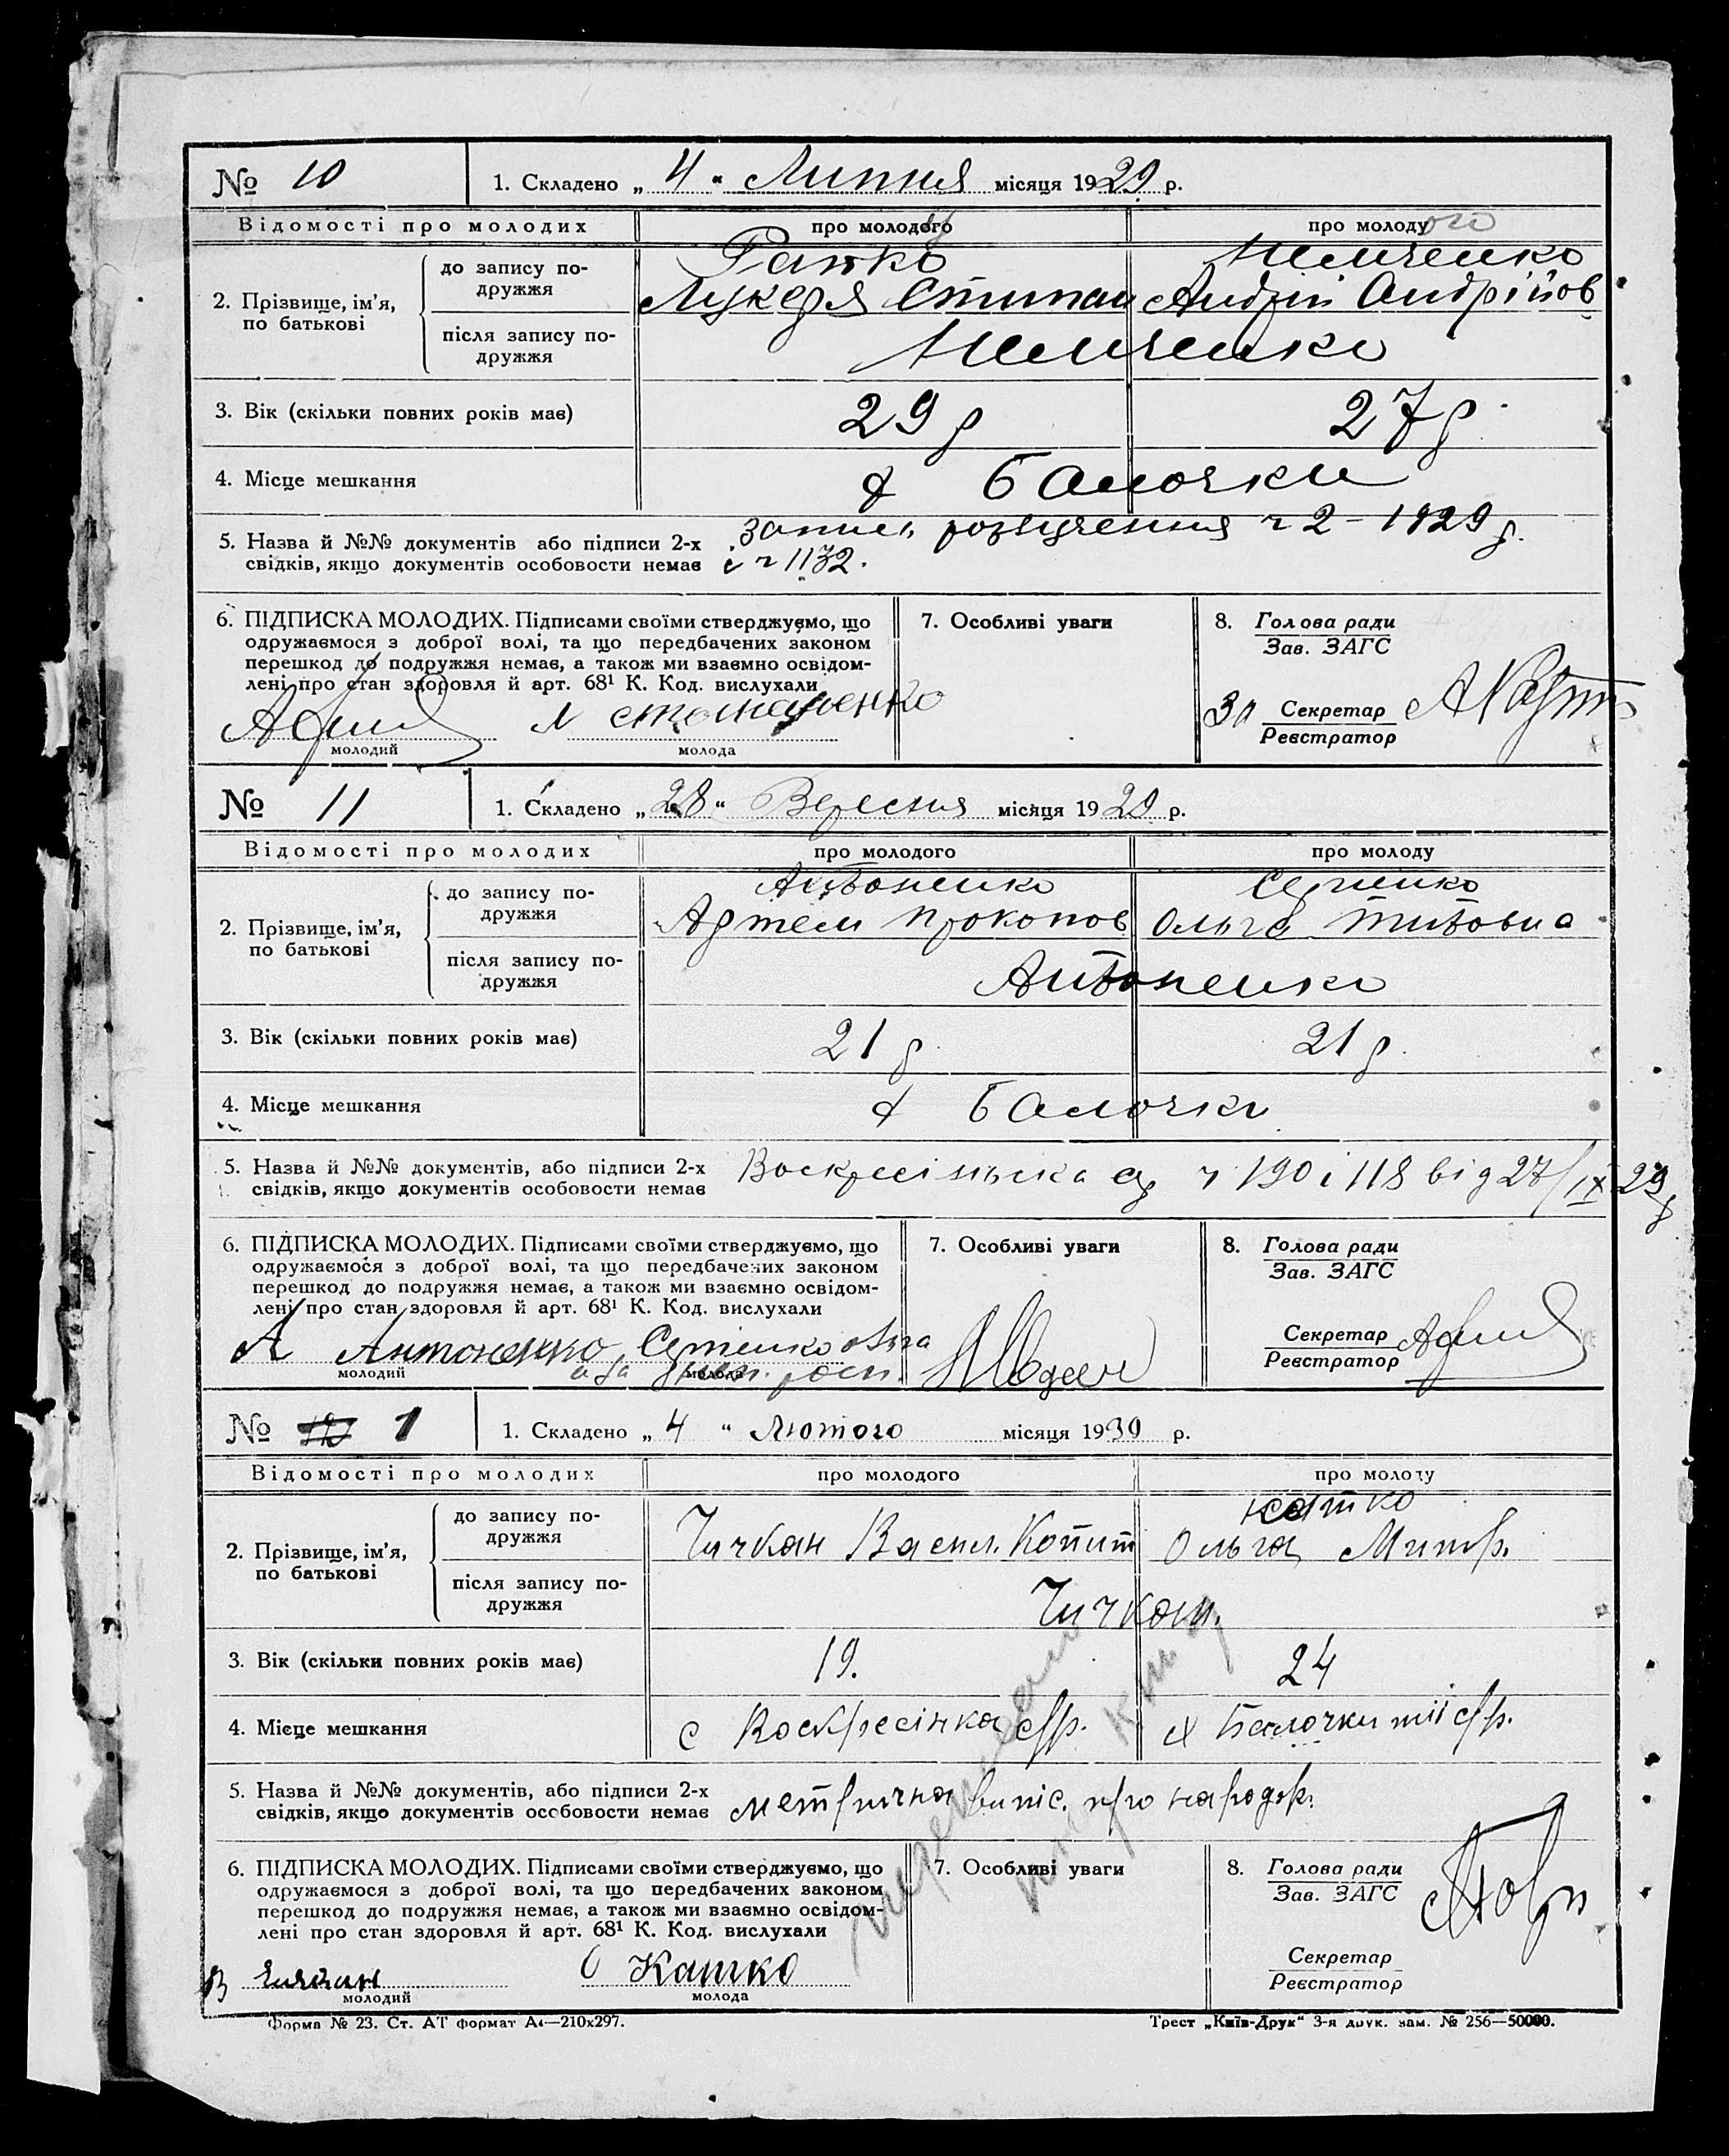 № 10 1. Складено „ 4 " Липня місяця 1929 р.
Відомості про молодих про молодого про молоду
2. Прізвище, ім'я, по батькові
до запису подружжя
Лукеря Степан Андрій Андріїов
після запису подружжя
3. Вік (скільки повних років має) 29 р 27 р.
4. Місце мешкання х Балочки
5. Назва й №№ документів або підписи 2-х ч 2 – 1929 р.
свідків, якщо документів особовости немає ч 1132.
6. ПІДПИСКА МОЛОДИХ. Підписами своїми стверджуємо, що
одружаємося з доброї волі, та що передбачених законом
перешкод до подружжя немає, а також ми взаємно освідом-
лені про стан здоровля й арт. 68¹ К. Код. вислухали
молодий молода
7. Особливі уваги
8. Голова ради
Зав. ЗАГС
За Секретар
Реєстратор
№ 11 1. Складено „ 28 " Вересня місяця 1929 р.
Відомості про молодих про молодого про молоду
2. Прізвище, ім'я, по батькові
до запису подружжя Антоненко Сергиенко
Артем Прокопов Ольга Титовна
після запису подружжя Антоненко
3. Вік (скільки повних років має) 21 р 21 р.
4. Місце мешкання х Балочки
5. Назва й №№ документів, або підписи 2-х Воскресінська ч 190 і 118 від 27/IX 29 р
свідків, якщо документів особовости немає
6. ПІДПИСКА МОЛОДИХ. Підписами своїми стверджуємо, що
одружаємося з доброї волі, та що передбачених законом
перешкод до подружжя немає, а також ми взаємно освідом-
лені про стан здоровля й арт. 68¹ К. Код. вислухали
А Антоненко Ольга
молодий молода
7. Особливі уваги
8. Голова ради
Зав. ЗАГС
Секретар
Реєстратор
№ 1 1. Складено „ 4 " Лютого місяця 1930 р.
Відомості про молодих про молодого про молоду
2. Прізвище, ім'я, по батькові
до запису подружжя Катко
Чичкан Васил. Копит Ольга Митр.
після запису подружжя Чичкан.
3. Вік (скільки повних років має) 19. 24
4. Місце мешкання с Воскресінка с/р. х Балочки тії с/р.
5. Назва й №№ документів, або підписи 2-х метрична випис. про народж.
свідків, якщо документів особовости немає
6. ПІДПИСКА МОЛОДИХ. Підписами своїми стверджуємо, що
одружаємося з доброї волі, та що передбачених законом
перешкод до подружжя немає, а також ми взаємно освідом-
лені про стан здоровля й арт. 68¹ К. Код. вислухали
В Чичкан О Катко
молодий молода
7. Особливі уваги
8. Голова ради
Зав. ЗАГС
Секретар
Реєстратор
Форма № 23. Ст. АТ формат А4—210x297. Трест „Київ-Друк" 3-я друк. зам. № 256—50000.